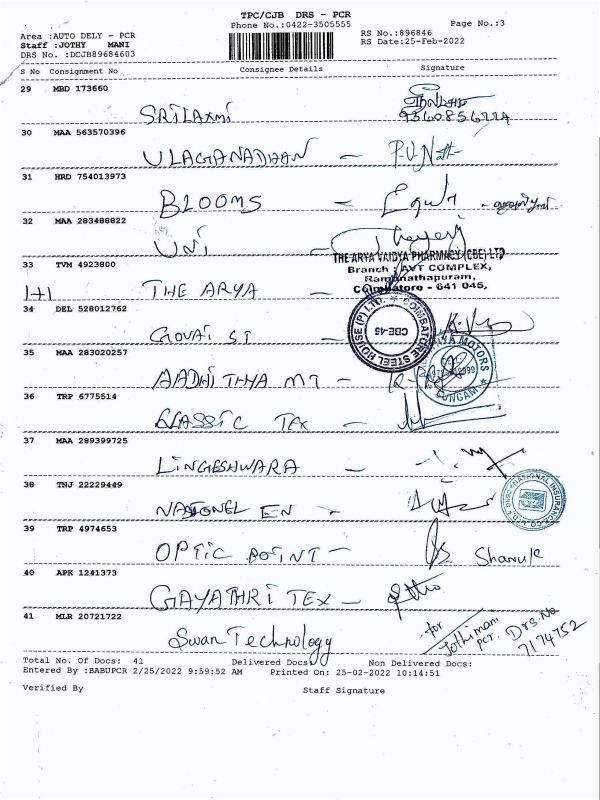 TPC/CJB DRS - PCR
Phone No.:0422-3505555
Page No.:3
Area :AUTO DELY - PCR
Staff :JOTHY MANI
DRS No. :DCJB89684603
RS No.:896846
RS Date:25-Feb-2022
S No Consignment No Consignee Details Signature
29 MBD 173660
SRI LAXMI
30 MAA 563570396
ULAGANADHAN - P.U.Nath
31 HRD 754013973
BLOOMS -
32 MAA 283488822
UNI -
THE ARYA VAIDYA PHARMACY (CBE) LTD
Branch : AVT COMPLEX,
Ramanathapuram,
Coimbatore - 641 045.
33 TVM 4923800
1+1 THE ARYA -
COIMBATORE STEEL HOUSE (P) LTD.
CBE-45
34 DEL 528012762
COVAI ST
35 MAA 283020257
AADHITHYA MT -
MOTORS
SUNGAM
36 TRP 6775514
CLASSIC TEX -
37 MAA 289399725
LINGESHWARA -
38 TNJ 22229449
NATIONEL EN -
NATIONAL INSURANCE CO. LTD
39 TRP 4974653
OPTIC POINT -
40 APK 1241373
GAYATHRI TEX -
41 MLR 20721722
Swan Technology
for Jothimani PCR. Drs. No 7174752
Total No. Of Docs: 41 Delivered Docs: Non Delivered Docs:
Entered By :BABUPCR 2/25/2022 9:59:52 AM Printed On: 25-02-2022 10:14:51
Verified By Staff Signature